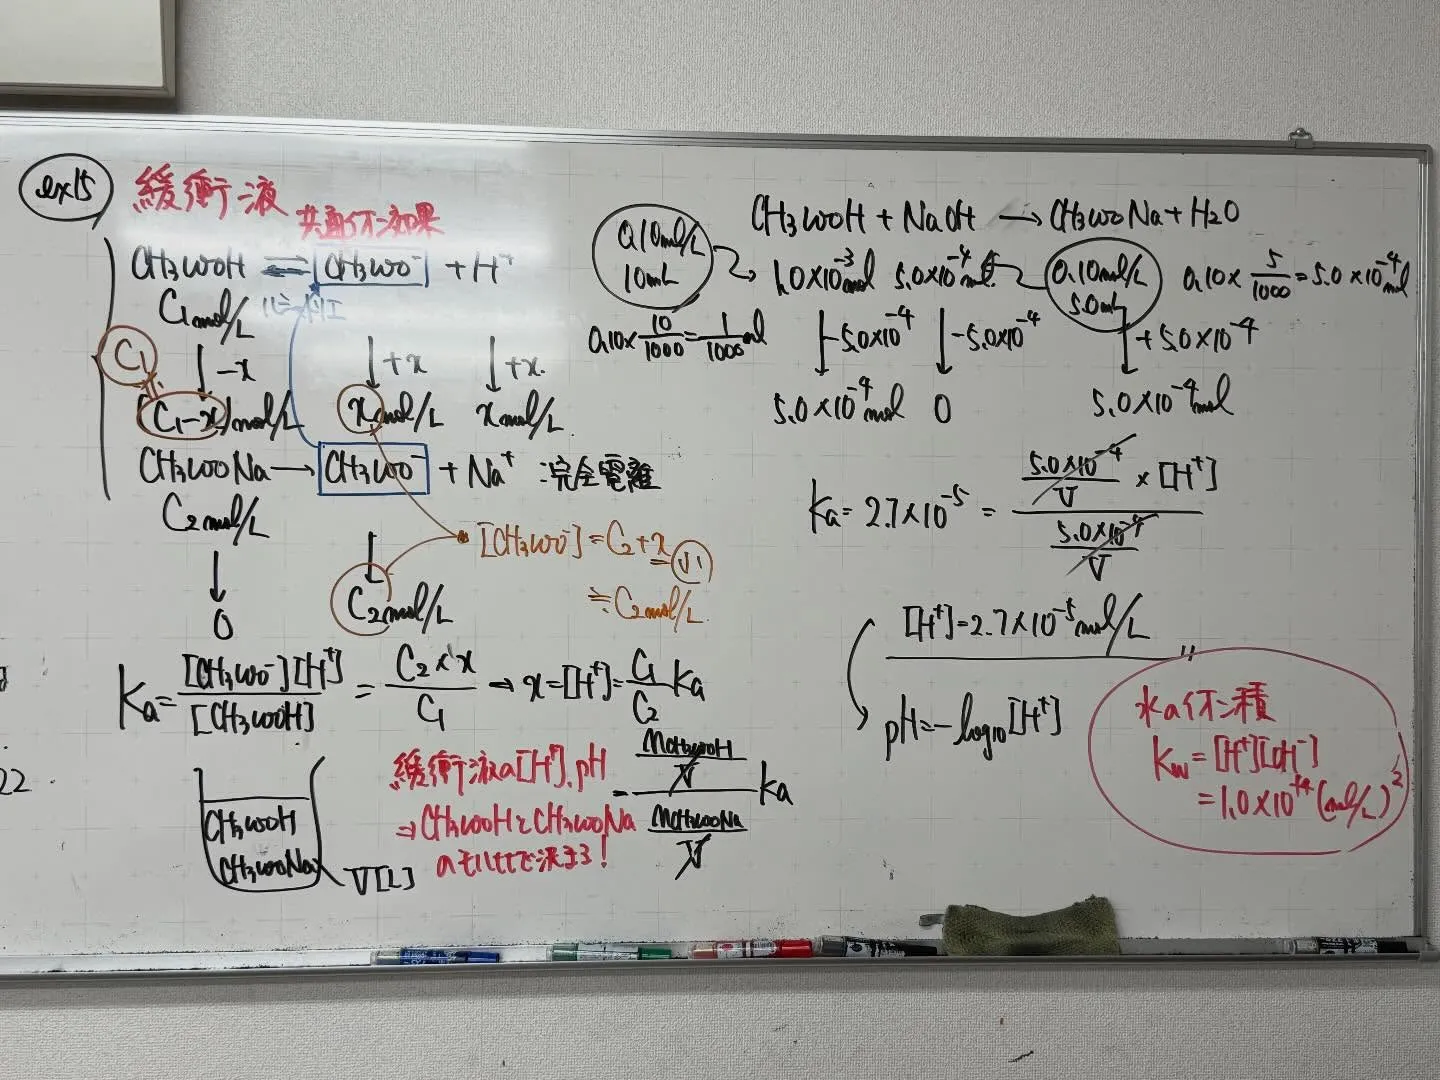 ex15
緩衝液
共通イオン効果
CH3COOH ⇌ CH3COO⁻ + H⁺
C1mol/L
C1
↓-x ↓+x ↓+x
(C1-x)mol/L xmol/L xmol/L
CH3COONa → CH3COO⁻ + Na⁺ :完全電離
C2mol/L
↓ ↓
0 C2mol/L
[CH3COO⁻]=C2+x
≒C2mol/L
Ka= [CH3COO⁻][H⁺]/[CH3COOH] = C2×x/C1 → x=[H⁺]=C1/C2 Ka
= (nCH3COOH/V)/(nCH3COONa/V) Ka
CH3COOH
CH3COONa
V[L]
緩衝液の[H⁺].pH
⇒CH3COOHとCH3COONa
のモル比で決まる!
22
CH3COOH + NaOH → CH3COONa + H2O
0.10mol/L
10mL
1.0×10⁻³mol 5.0×10⁻⁴mol
0.10mol/L
5.0mL
0.10×5/1000=5.0×10⁻⁴mol
0.10×10/1000=1/1000mol
↓-5.0×10⁻⁴ ↓-5.0×10⁻⁴ ↓+5.0×10⁻⁴
5.0×10⁻⁴mol 0 5.0×10⁻⁴mol
Ka=2.7×10⁻⁵= (5.0×10⁻⁴/V × [H⁺])/(5.0×10⁻⁴/V)
[H⁺]=2.7×10⁻⁵mol/L
pH=-log10[H⁺]
水のイオン積
Kw=[H⁺][OH⁻]
=1.0×10⁻¹⁴(mol/L)²